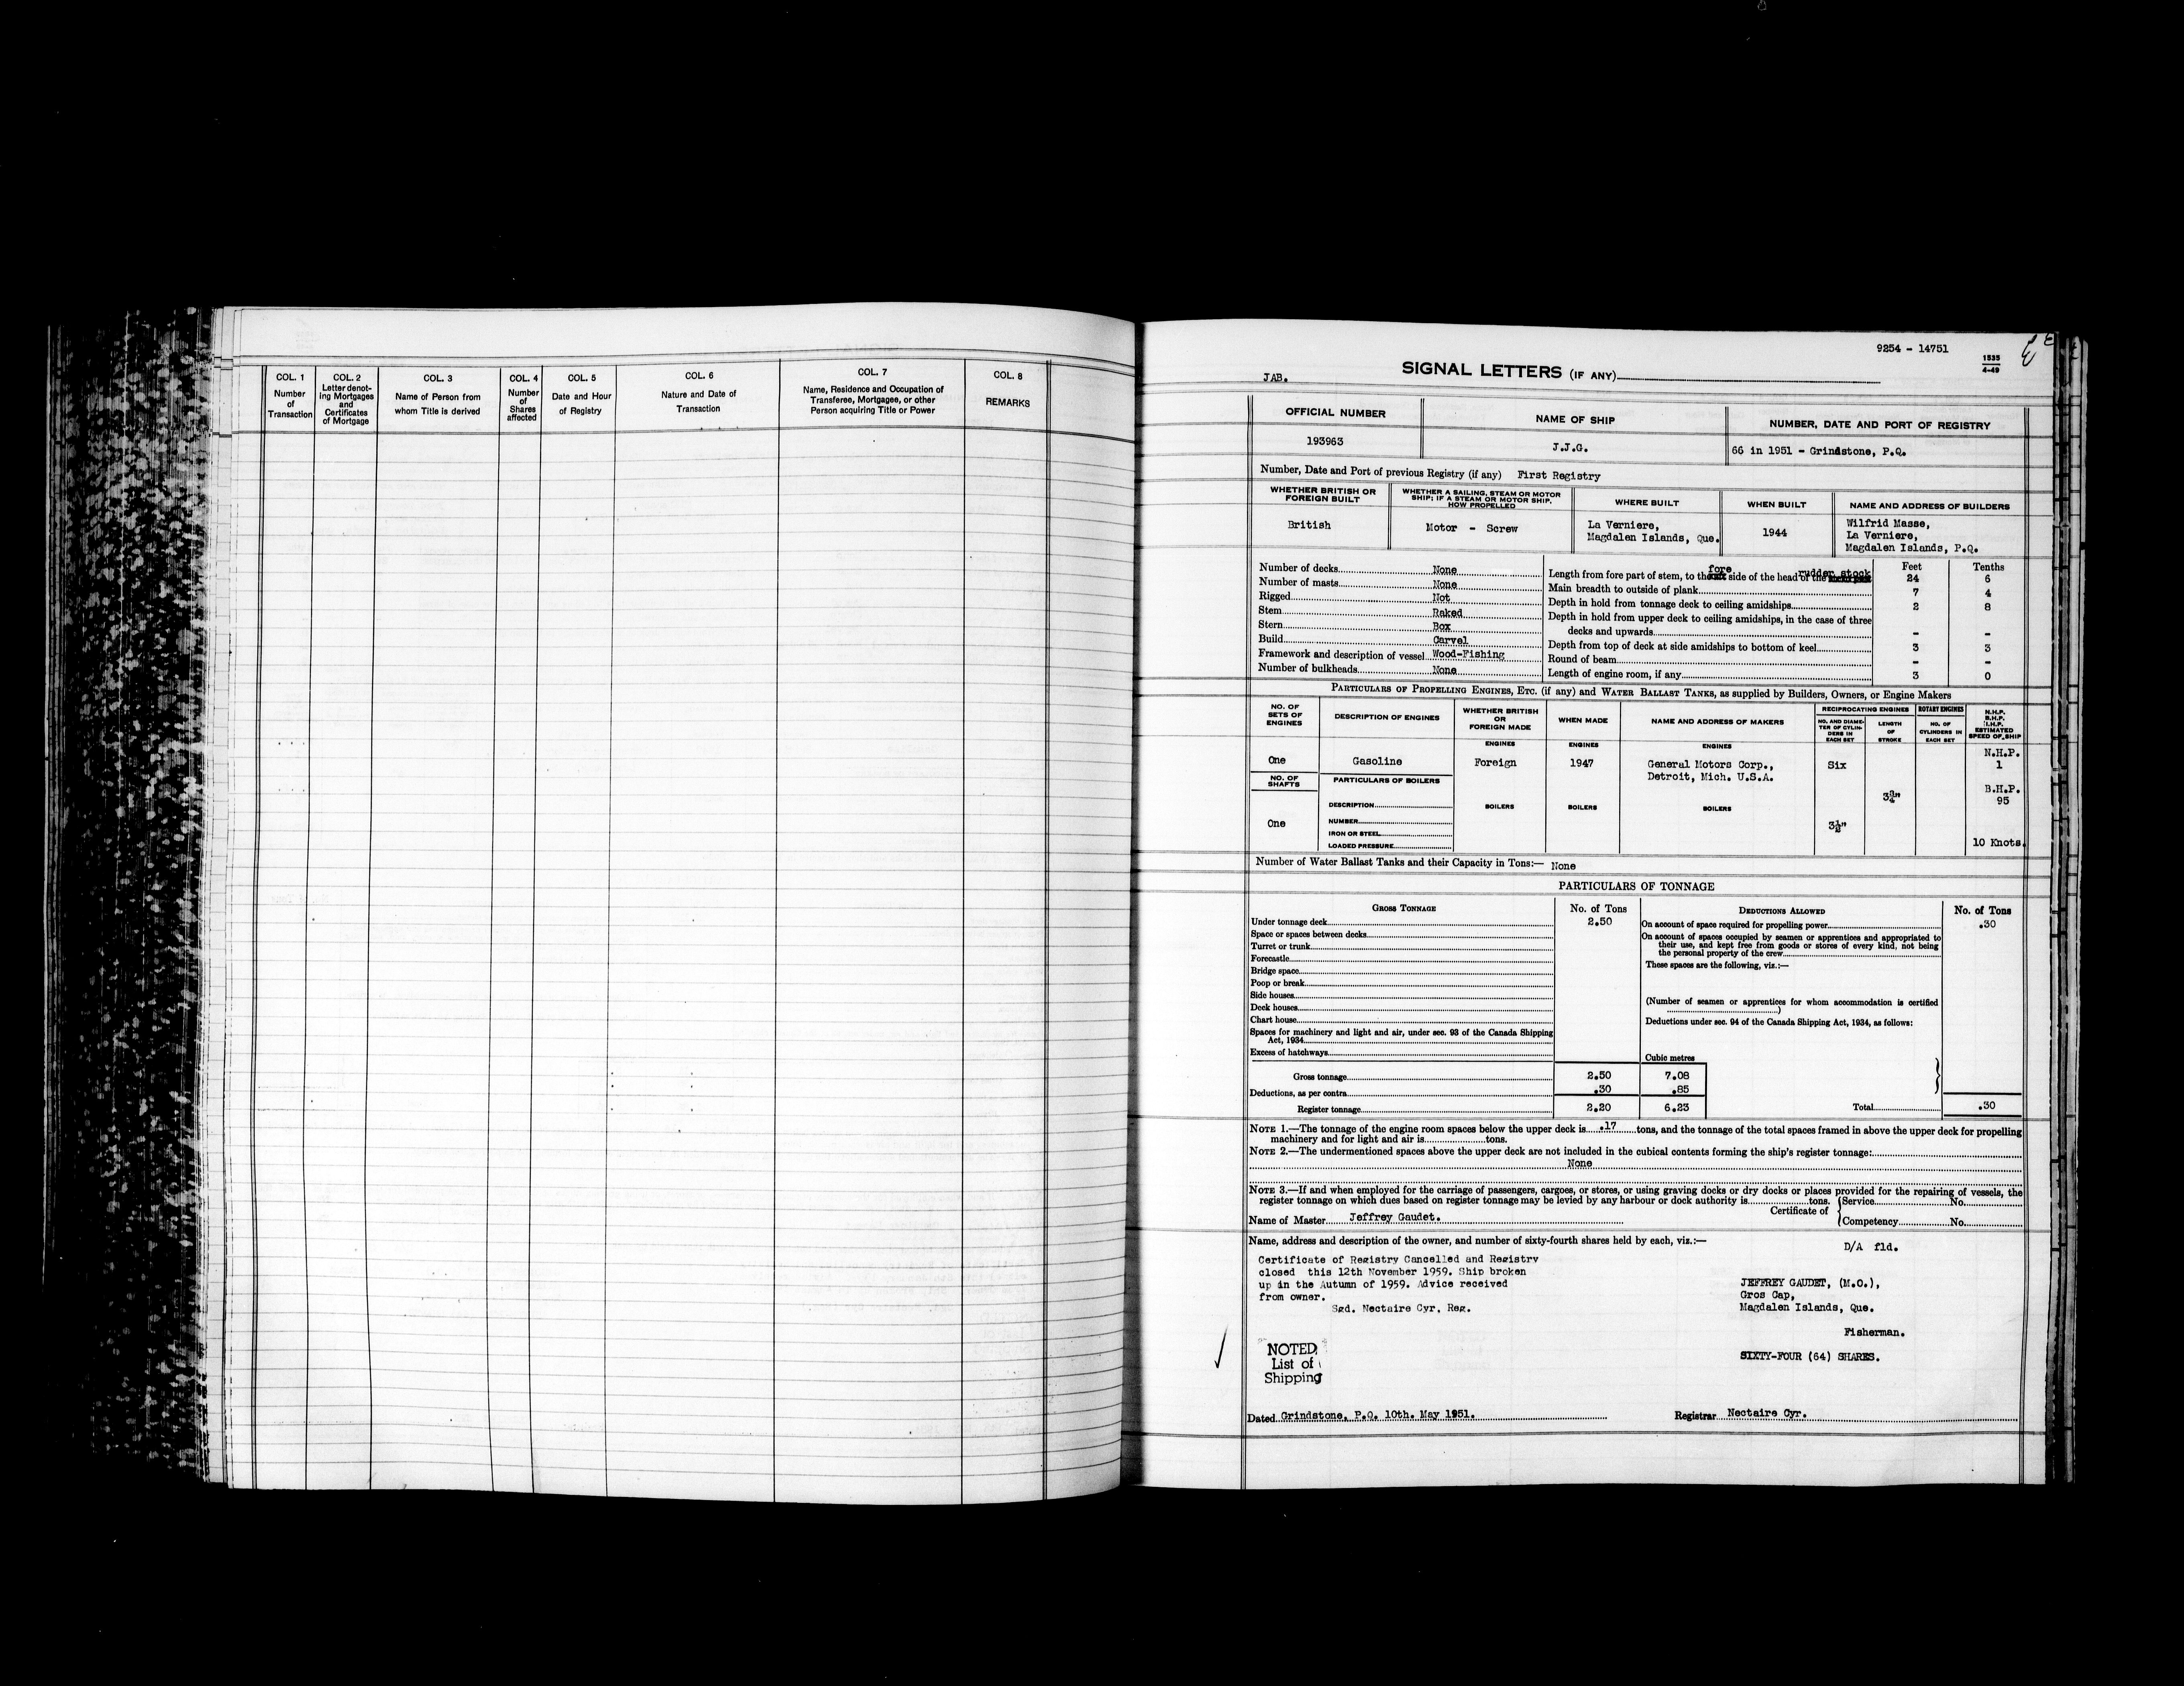 COL. 1
Number
of
Transaction
COL. 2
Letter denot-
ing Mortgages
and
Certificates
of Mortgage
COL. 3
Name of Person from
whom Title is derived
COL. 4
Number
of
Shares
affected
COL. 5
Date and Hour
of Registry
COL. 6
Nature and Date of
Transaction
COL. 7
Name, Residence and Occupation of
Transferee, Mortgagee, or other
Person acquiring Title or Power
COL. 8
REMARKS
9254 - 14751
1535
4-49
JAB.
SIGNAL LETTERS (IF ANY)
OFFICIAL NUMBER
NAME OF SHIP
NUMBER, DATE AND PORT OF REGISTRY
193963
J.J.G.
66 in 1951 - Grindstone, P.Q.
Number, Date and Port of previous Registry (if any) First Registry
WHETHER BRITISH OR
FOREIGN BUILT
WHETHER A SAILING, STEAM OR MOTOR
SHIP; IF A STEAM OR MOTOR SHIP,
HOW PROPELLED
WHERE BUILT
WHEN BUILT
NAME AND ADDRESS OF BUILDERS
British
Motor - Screw
La Verniere,
Magdalen Islands, Que.
1944
Wilfrid Masse,
La Verniere,
Magdalen Islands, P.Q.
Number of decks None
Number of masts None
Rigged Not
Stem Raked
Stern Box
Build Carvel
Framework and description of vessel Wood-Fishing
Number of bulkheads None
Feet Tenths
fore rudder stock
Length from fore part of stem, to the side of the head of the 24 6
Main breadth to outside of plank 7 4
Depth in hold from tonnage deck to ceiling amidships 2 8
Depth in hold from upper deck to ceiling amidships, in the case of three
decks and upwards - -
Depth from top of deck at side amidships to bottom of keel 3 3
Round of beam - -
Length of engine room, if any 3 0
PARTICULARS OF PROPELLING ENGINES, ETC. (if any) and WATER BALLAST TANKS, as supplied by Builders, Owners, or Engine Makers
NO. OF
SETS OF
ENGINES
DESCRIPTION OF ENGINES
WHETHER BRITISH
OR
FOREIGN MADE
WHEN MADE
NAME AND ADDRESS OF MAKERS
RECIPROCATING ENGINES
NO. AND DIAME-
TER OF CYLIN-
DERS IN
EACH SET
LENGTH
OF
STROKE
ROTARY ENGINES
NO. OF
CYLINDERS IN
EACH SET
N.H.P.
B.H.P.
I.H.P.
ESTIMATED
SPEED OF SHIP
ENGINES
ENGINES
ENGINES
N.H.P.
One
Gasoline
Foreign
1947
General Motors Corp.,
Detroit, Mich. U.S.A.
Six
1
NO. OF
SHAFTS
PARTICULARS OF BOILERS
B.H.P.
95
3¾"
DESCRIPTION
BOILERS
BOILERS
BOILERS
One
NUMBER
3½"
IRON OR STEEL
LOADED PRESSURE
10 Knots.
Number of Water Ballast Tanks and their Capacity in Tons:— None
PARTICULARS OF TONNAGE
GROSS TONNAGE
No. of Tons
DEDUCTIONS ALLOWED
No. of Tons
Under tonnage deck 2.50
Space or spaces between decks
Turret or trunk
Forecastle
Bridge space
Poop or break
Side houses
Deck houses
Chart house
Spaces for machinery and light and air, under sec. 93 of the Canada Shipping
Act, 1934
Excess of hatchways
On account of space required for propelling power .30
On account of spaces occupied by seamen or apprentices and appropriated to
their use, and kept free from goods or stores of every kind, not being
the personal property of the crew
These spaces are the following, viz.:—
(Number of seamen or apprentices for whom accommodation is certified
)
Deductions under sec. 94 of the Canada Shipping Act, 1934, as follows:
Cubic metres
Gross tonnage 2.50 7.08
Deductions, as per contra .30 .85
Register tonnage 2.20 6.23
Total .30
NOTE 1.—The tonnage of the engine room spaces below the upper deck is .17 tons, and the tonnage of the total spaces framed in above the upper deck for propelling
machinery and for light and air is tons.
NOTE 2.—The undermentioned spaces above the upper deck are not included in the cubical contents forming the ship's register tonnage:
None
NOTE 3.—If and when employed for the carriage of passengers, cargoes, or stores, or using graving docks or dry docks or places provided for the repairing of vessels, the
register tonnage on which dues based on register tonnage may be levied by any harbour or dock authority is tons.
Name of Master Jeffrey Gaudet.
Certificate of
Service No.
Competency No.
Name, address and description of the owner, and number of sixty-fourth shares held by each, viz.:—
D/A fld.
Certificate of Registry Cancelled and Registry
closed this 12th November 1959. Ship broken
up in the Autumn of 1959. Advice received
from owner.
Sgd. Nectaire Cyr, Reg.
JEFFREY GAUDET, (M.O.),
Gros Cap,
Magdalen Islands, Que.
Fisherman.
SIXTY-FOUR (64) SHARES.
NOTED
List of
Shipping
Dated Grindstone, P.Q. 10th. May 1951.
Registrar Nectaire Cyr.